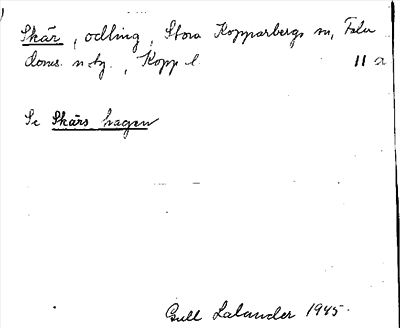 Skär, odling, Stora Kopparbergs sn, Falu
doms. n tg., Kopp l. 11 a
Se Skärs hagen
Gull Lalander 1945.